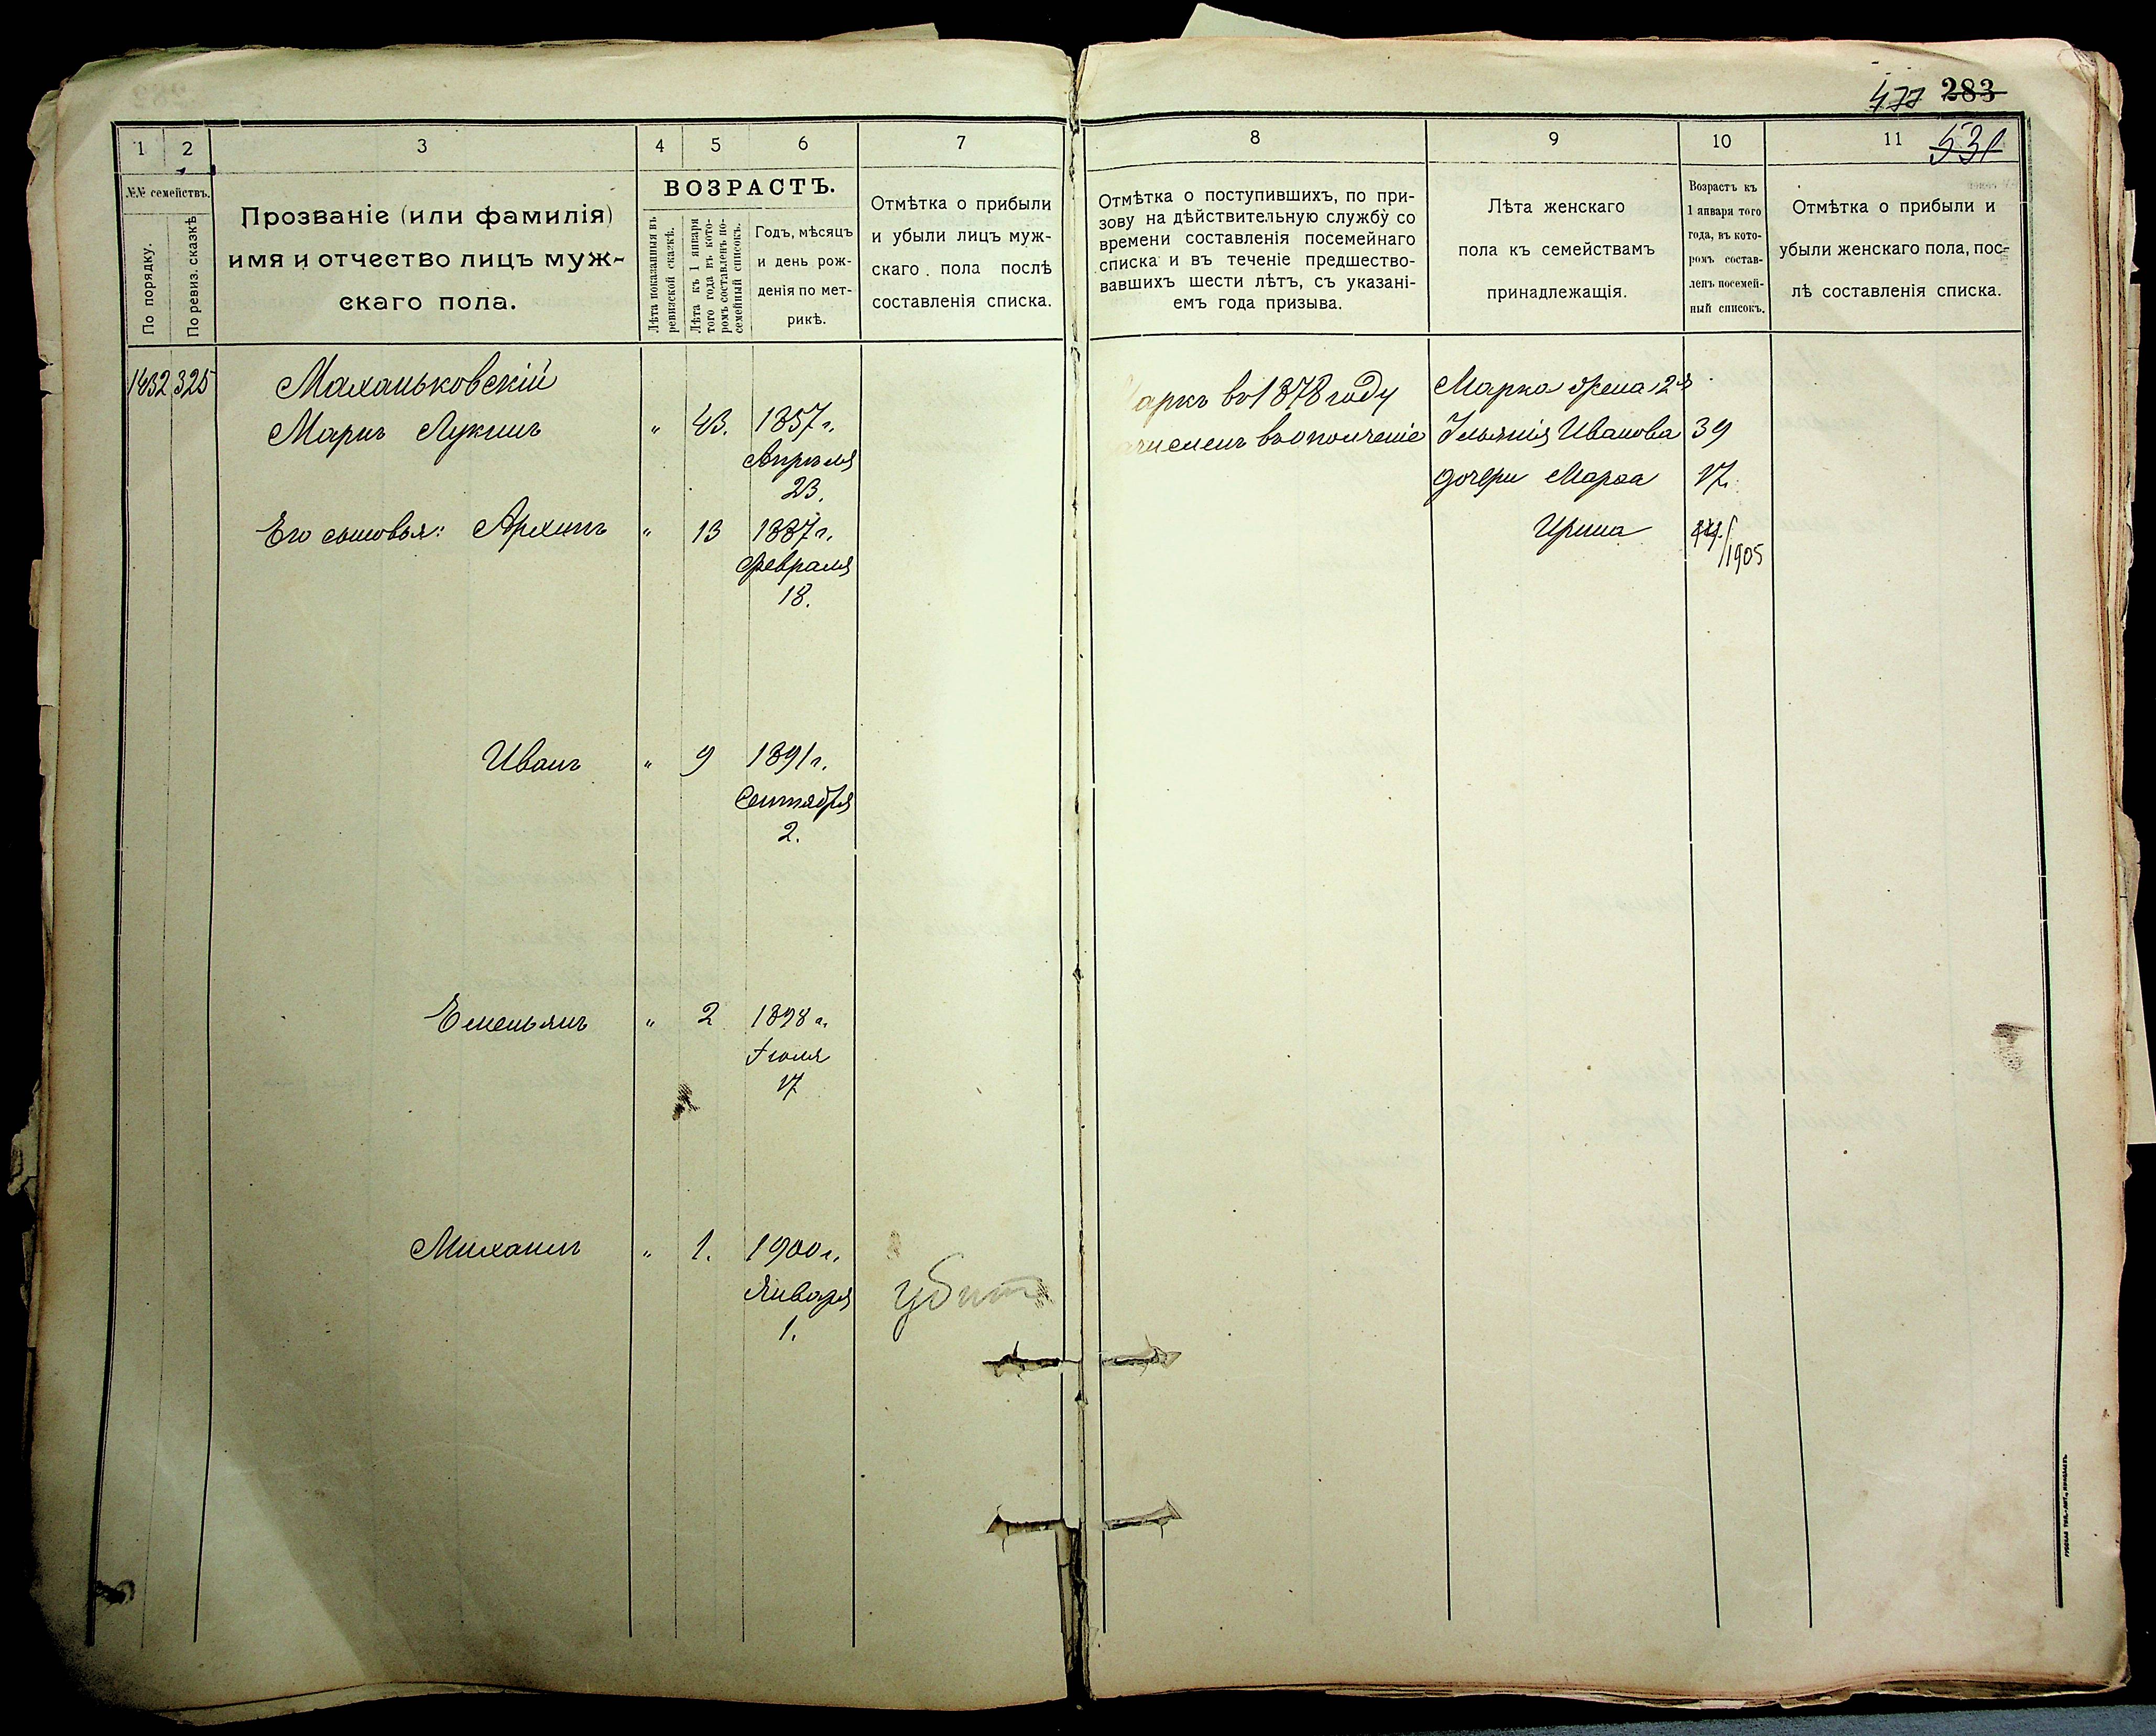 477 283
531
1 2 3 4 5 6 7
№№ семействъ.
По порядку.
По ревиз. сказкѣ
Прозваніе (или фамилія)
имя и отчество лицъ муж-
скаго пола.
ВОЗРАСТЪ.
Лѣта показанныя въ
ревизской сказкѣ.
Лѣта къ 1 января
того года въ кото-
ромъ составленъ по-
семейный списокъ.
Годъ, мѣсяцъ
и день рож-
денія по мет-
рикѣ.
Отмѣтка о прибыли
и убыли лицъ муж-
скаго пола послѣ
составленія списка.
1432 325 Маханьковскій
Маркъ Лукинъ " 43. 1857 г.
Апрѣля
23.
Его сыновья: Архипъ " 13 1887 г.
Февраля
18.
Иванъ " 9 1891 г.
Сентября
2.
Емельянъ " 2 1898 г.
Іюля
17
Михаилъ " 1. 1900 г.
Января
1.
убит
8 9 10 11
Отмѣтка о поступившихъ, по при-
зову на дѣйствительную службу со
времени составленія посемейнаго
списка и въ теченіе предшество-
вавшихъ шести лѣтъ, съ указані-
емъ года призыва.
Лѣта женскаго
пола къ семействамъ
принадлежащія.
Возрастъ къ
1 января того
года, въ кото-
ромъ состав-
ленъ посемей-
ный списокъ.
Отмѣтка о прибыли и
убыли женскаго пола, пос-
лѣ составленія списка.
Маркъ въ 1878 году
зачисленъ въ ополченіе
Марка жена 2я
Ульянія Иванова 39
дочери Марѳа 17.
Ирина 1905